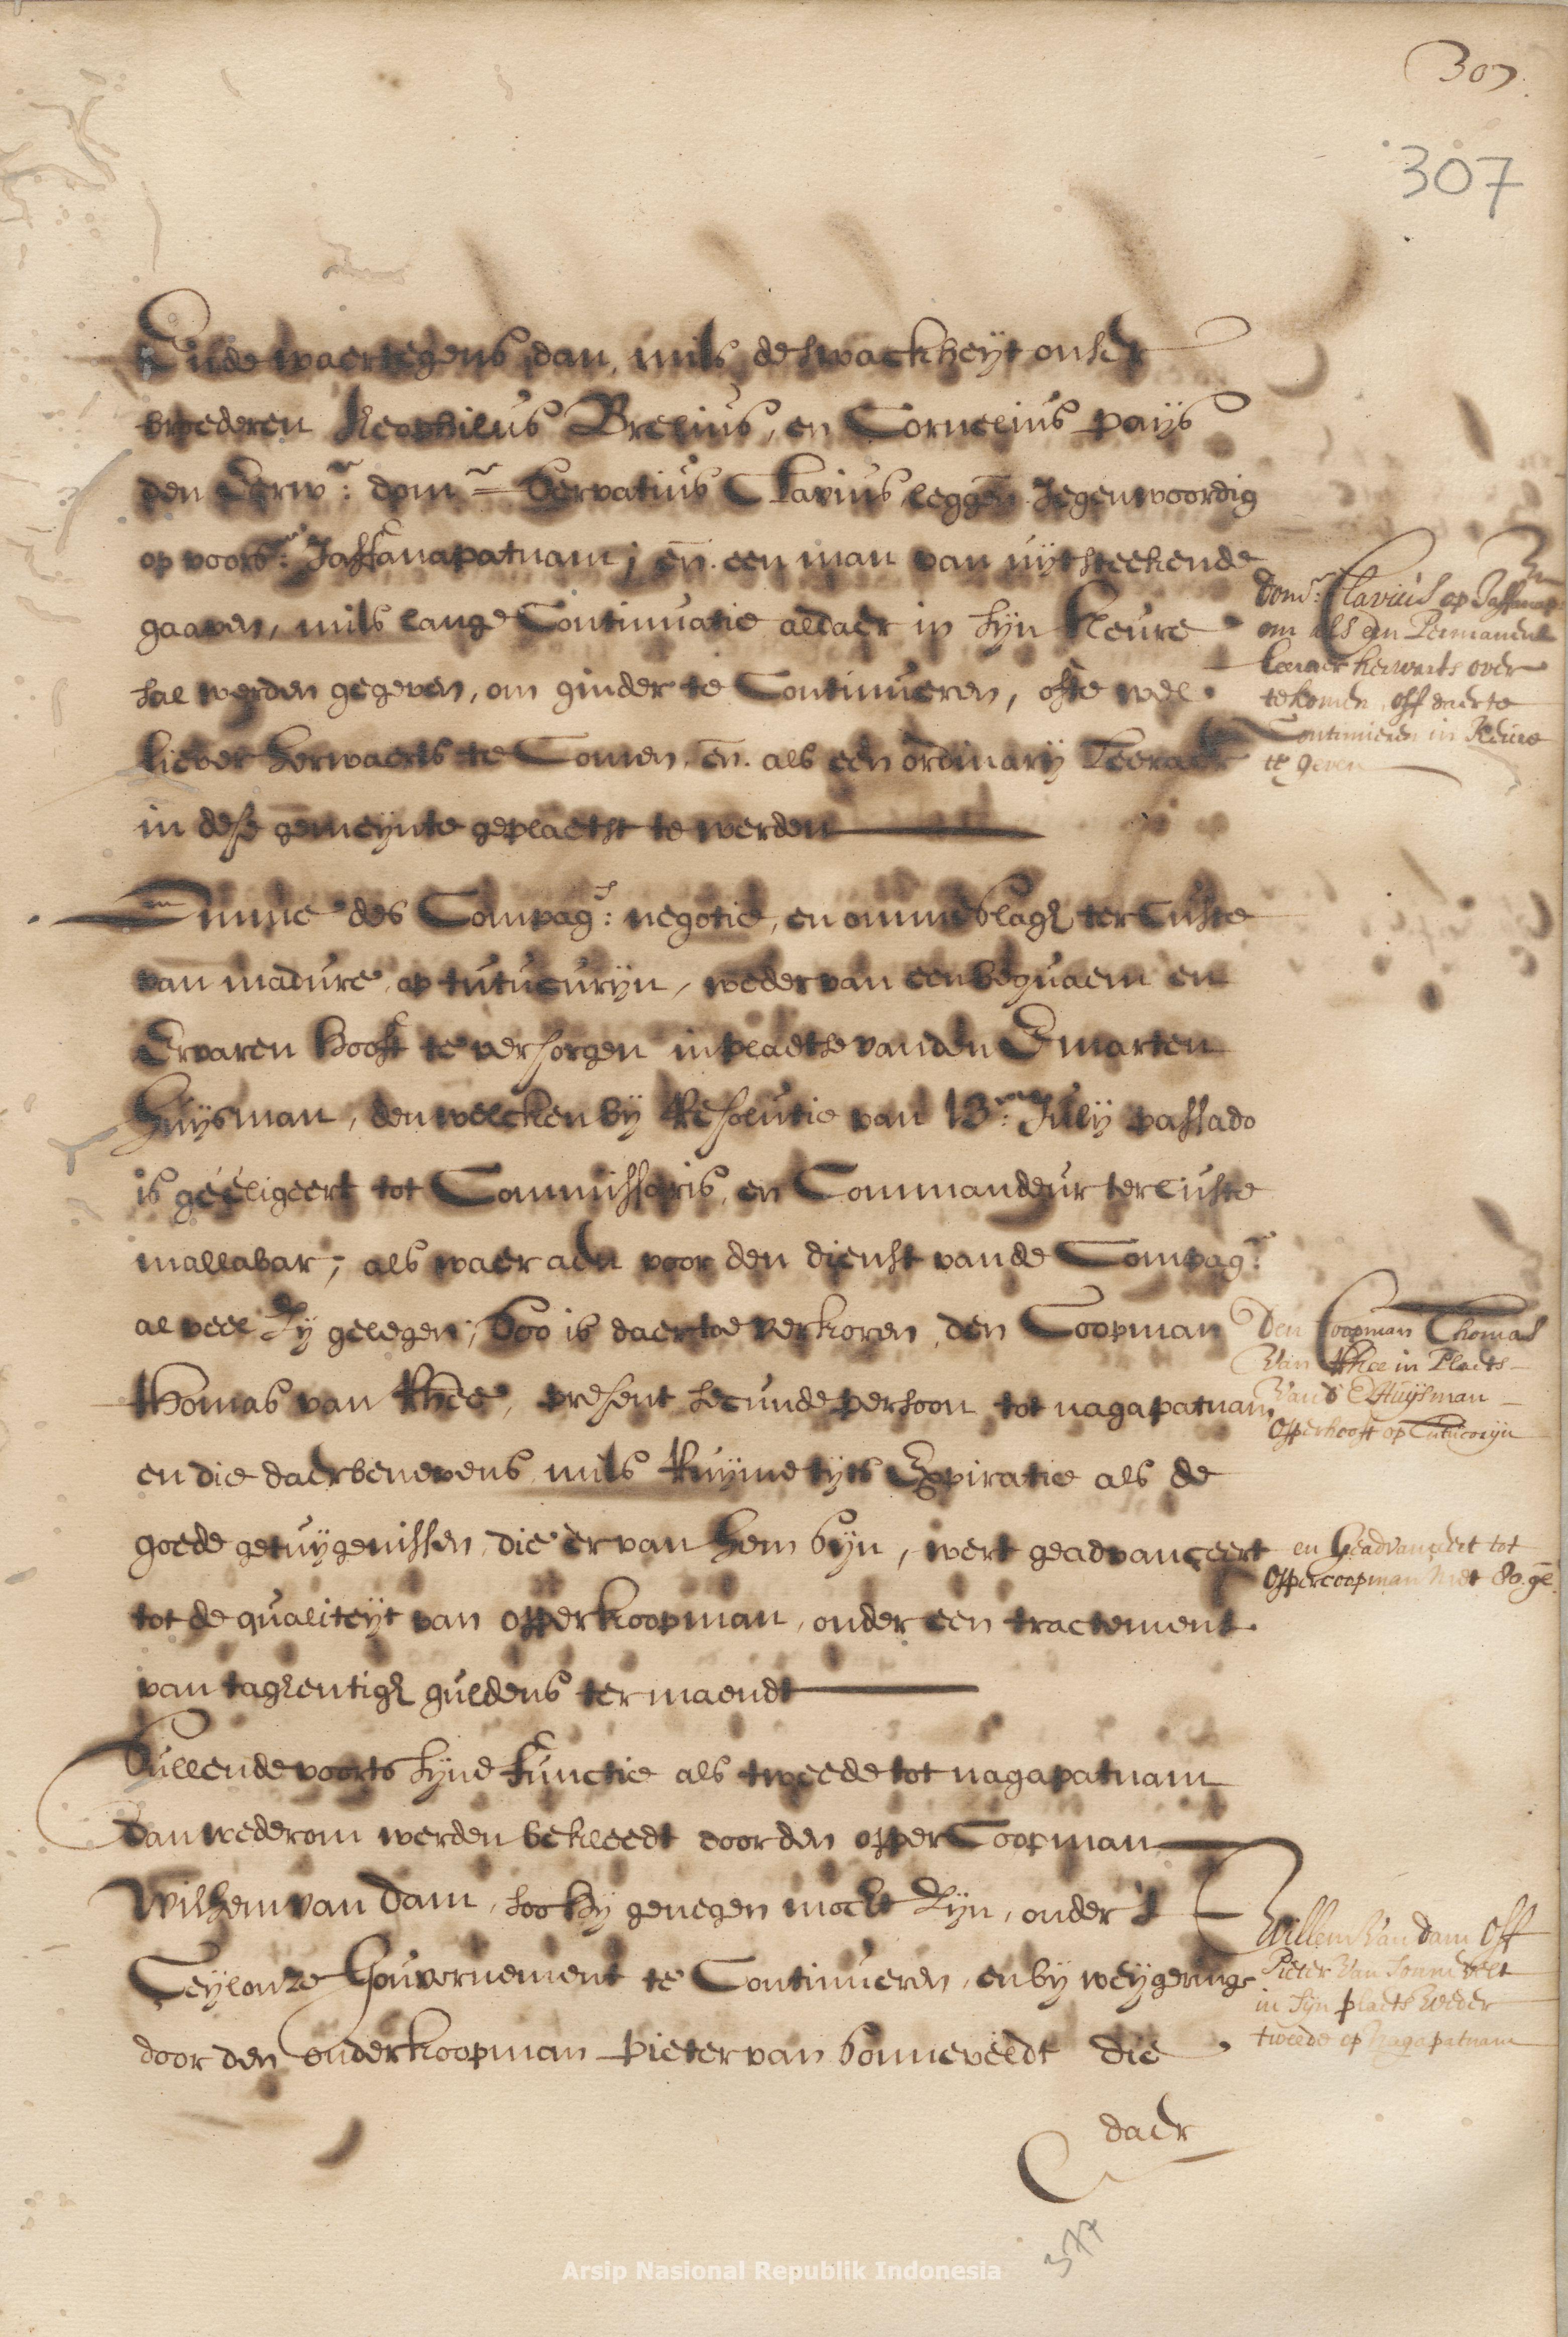 307.
307
Ende waertegens dan, mits de swackheyt onser
broederen Theophilus Brelius, en Cornelius pays
den Eerw:r dom:e Servatius Clavius leggen. Jegenwoordig
op voors: Jaffanapatnam; en. een man van uytsteekende
gaaven, mits lange Continuatie aldaer in syn keure
sal werden gegeven, om ginder te Continueren, ofte wel
liever herwaerts te Comen, en. als een ordinary Leeraer
in dese gemeynte geplaetst te werden
dom:e Clavius op Jaffnap:
om als een Permanent
leeraer herwaerts over
te komen, off daer te
Continueren in Keure
te geven
Omme des Compag:s negotie, en ommeslagh ter Custe
van madure, op tutucuryn, weder van een bequaem en
Ervaren hooft te versorgen in plaetse van den E marten
Huysman, den welcken by Resolutie van 13:en July passado
is geëligeert tot Commissaris, en Commandeur ter Custe
mallabar; als waer aen voor den dienst van de Compag:e
al veel sy gelegen; soo is daertoe verkoren, den Coopman
thomas van Rhee, present secunde persoon tot nagapatnam,
en die daerbenevens, mits Ruyme tyts Expiratie als de
goede getuygenissen, die er van hem syn, wert geadvanceert
tot de qualiteyt van opperkoopman, onder een tractement
van taghentigh guldens ter maendt
Den Coopman Thomas
Van Rhee in Plaets
Van d' E Huysman
Opperhooft op Tutucoryn
en Geadvanceert tot
Oppercoopman met 80. gl.
Sullende voorts syne functie als tweede tot nagapatnam
dan wederom werden bekleedt door den opper Coopman
Wilhem van dam, soo hy genegen mocht syn, onder 't
Ceylonze Gouvernement te Continueren, en by weygeringe
door den onderkoopman pieter van sonneveldt die
Willem Van dam Off
Pieter Van Sonnevelt
in syn plaets weder
tweede op Nagapatnam
daer
377
Arsip Nasional Republik Indonesia